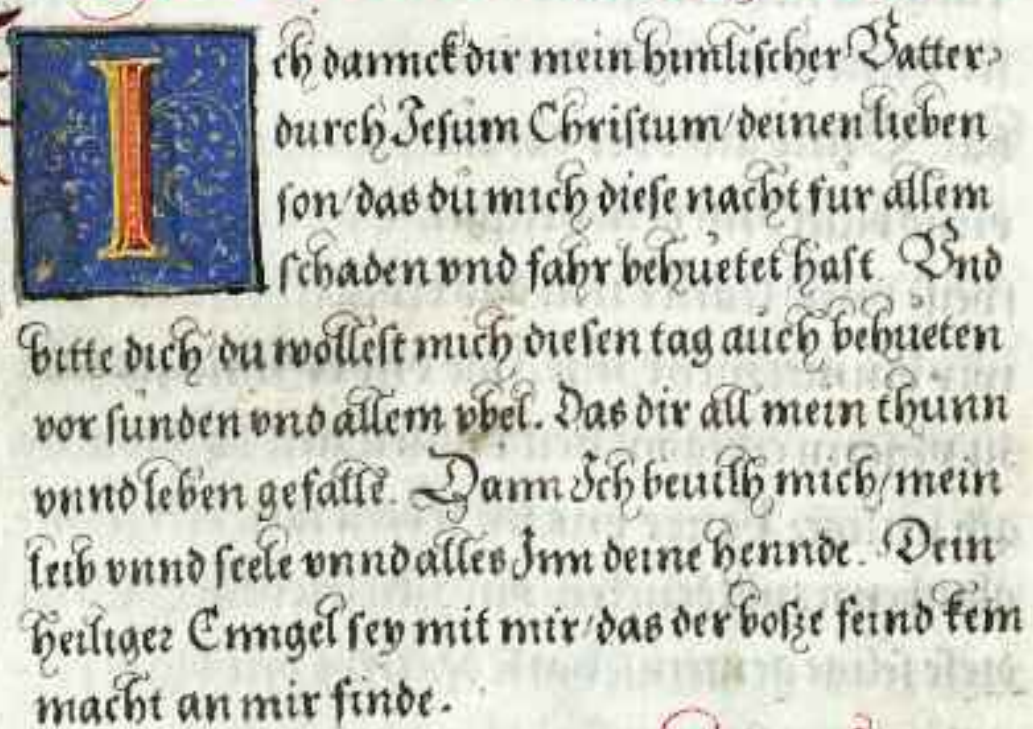 Ich dannck dir mein himlischer Vatter,
durch Jesum Christum/ deinen lieben
son/ das du mich diese nacht fur allem
schaden vnd fahr behuetet hast. Vnd
bitte dich/ du wollest mich diesen tag auch behueten
vor sunden vnd allem vbel. Das dir all mein thunn
vnnd leben gefalle. Dann Ich beuilh mich/ mein
leib vnnd seele vnnd alles Inn deine hennde. Dein
heiliger Enngel sey mit mir/ das der bosze feind kein
macht an mir finde.